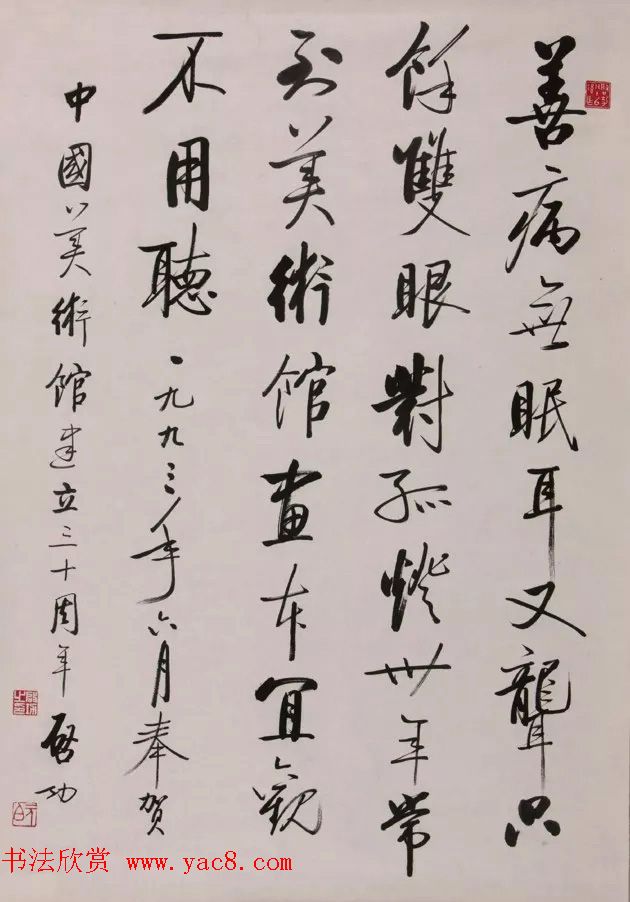 善病無眠耳又聾只
餘雙眼對孤燈卅年常
到美術館畫本宜觀
不用聽一九九三年六月奉賀
中國美術館建立三十周年 啓功
书法欣赏 www.yac8.com